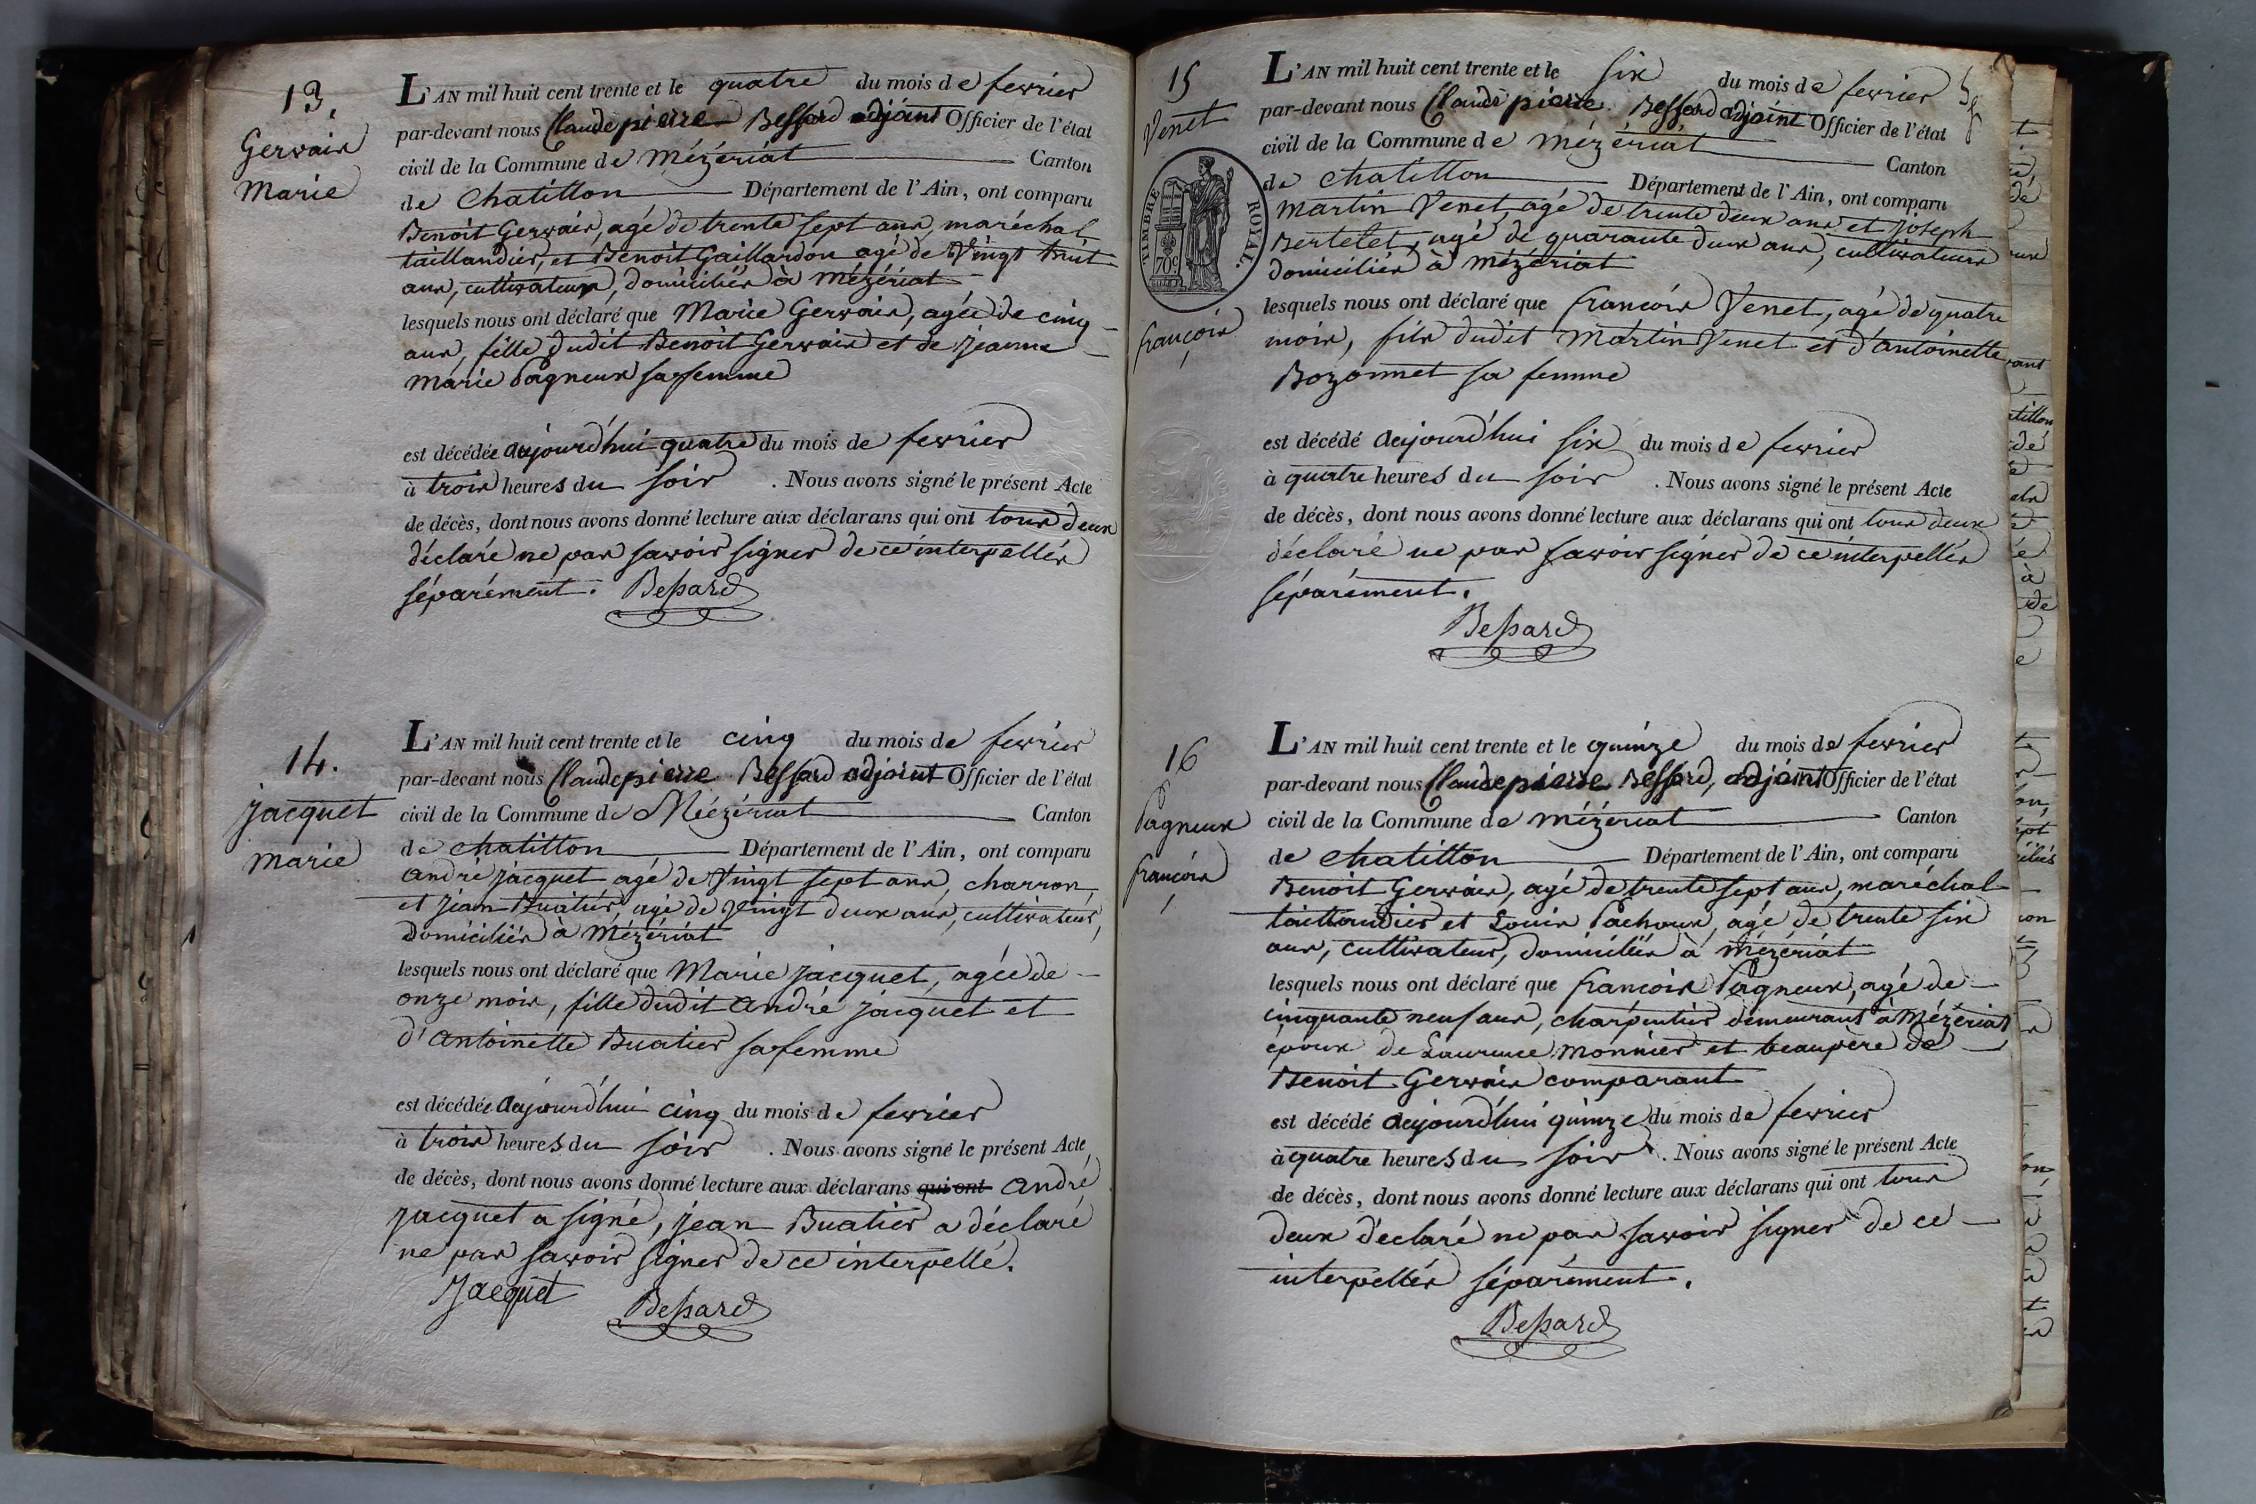 13.
Gervais
Marie
L'AN mil huit cent trente et le quatre du mois de fevrier
par-devant nous Claude pierre Bessard adjoint Officier de l'état
civil de la Commune de Mézériat Canton
de Chatillon Département de l'Ain, ont comparu
Benoit Gervais, agé de trente sept ans, maréchal
taillandier, et Benoit Gaillardon agé de Vingt huit
ans, cultivateur, domiciliés à Mézériat
lesquels nous ont déclaré que Marie Gervais, agée de cinq
ans, fille dudit Benoit Gervais et de jeanne
Marie Pagneux sa femme
est décédée aujourd'hui quatre du mois de fevrier
à trois heures du soir . Nous avons signé le présent Acte
de décès, dont nous avons donné lecture aux déclarans qui ont tous deux
déclaré ne pas savoir signer de ce interpellés
séparément. Bessard
14.
jacquet
marie
L'AN mil huit cent trente et le cinq du mois de fevrier
par-devant nous Claude pierre Bessard adjoint Officier de l'état
civil de la Commune de Mézériat Canton
de chatillon Département de l'Ain, ont comparu
andré jacquet agé de Vingt sept ans, charron,
et jean Buatier, agé de Vingt deux ans, cultivateur,
domiciliés à Mézériat
lesquels nous ont déclaré que Marie jacquet, agée de
onze mois, fille dudit andré jacquet et
d'antoinette Buatier sa femme
est décédée aujourd'hui cinq du mois de fevrier
à trois heures du soir . Nous avons signé le présent Acte
de décès, dont nous avons donné lecture aux déclarans qui ont andré
jacquet a signé, jean Buatier a déclaré
ne pas savoir signer de ce interpellé.
Jacquet Bessard
15
Venet
TIMBRE ROYAL.
70c
françois
L'AN mil huit cent trente et le six du mois de fevrier
par-devant nous Claude pierre Bessard adjoint Officier de l'état
civil de la Commune de mézériat Canton
de chatillon Département de l'Ain, ont comparu
martin Venet, agé de trente deux ans et joseph
Bertelet, agé de quarante deux ans, cultivateurs
domiciliés à mézériat
lesquels nous ont déclaré que françois Venet, agé de quatre
mois, fils dudit Martin Venet et d'antoinette
Bozonnet sa femme
est décédé aujourd'hui six du mois de fevrier
à quatre heures du soir . Nous avons signé le présent Acte
de décès, dont nous avons donné lecture aux déclarans qui ont tous deux
déclaré ne pas savoir signer de ce interpellés
séparément.
Bessard
16
Pagneux
françois
L'AN mil huit cent trente et le quinze du mois de fevrier
par-devant nous Claude pierre Bessard, adjoint Officier de l'état
civil de la Commune de mézériat Canton
de chatillon Département de l'Ain, ont comparu
Benoit Gervais, agé de trente sept ans, maréchal
taillandier et Louis Pachoux, agé de trente six
ans, cultivateur, domiciliés à mézériat
lesquels nous ont déclaré que francois Pagneux, agé de
cinquante neuf ans, charpentier demeurant à Mézériat
époux de Laurence Monnier et beaupère de
Benoit Gervais comparant
est décédé aujourd'hui quinze du mois de fevrier
à quatre heures du soir . Nous avons signé le présent Acte
de décès, dont nous avons donné lecture aux déclarans qui ont tous
deux déclaré ne pas savoir signer de ce
interpellés séparément.
Bessard